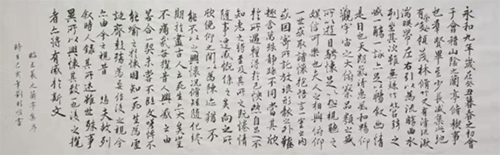 永和九年歲在癸丑暮春之初會
于會稽山陰之蘭亭脩稧事
也羣賢畢至少長咸集此地
有崇山峻領茂林脩竹又有清流激
湍暎帶左右引以為流觴曲水
列坐其次雖無絲竹管弦之
盛一觴一詠亦足以暢敘幽情
是日也天朗氣清惠風和暢仰
觀宇宙之大俯察品類之盛
所以遊目騁懷足以極視聽之
娛信可樂也夫人之相與俯仰
一世或取諸懷抱悟言一室之內
或因寄所託放浪形骸之外雖
趣舍萬殊靜躁不同當其欣
於所遇蹔得於己快然自足不
知老之將至及其所之既惓情
隨事遷感慨係之矣向之所
欣俛仰之間以為陳迹猶不
能不以之興懷況脩短隨化終
期於盡古人云死生亦大矣豈
不痛哉每攬昔人興感之由
若合一契未嘗不臨文嗟悼不
能喻之於懷固知一死生為虛
誕齊彭殤為妄作後之視今
亦由今之視昔悲夫故列
敘時人錄其所述雖世殊事
異所以興懷其致一也後之攬
者亦將有感於斯文
臨王羲之蘭亭集序